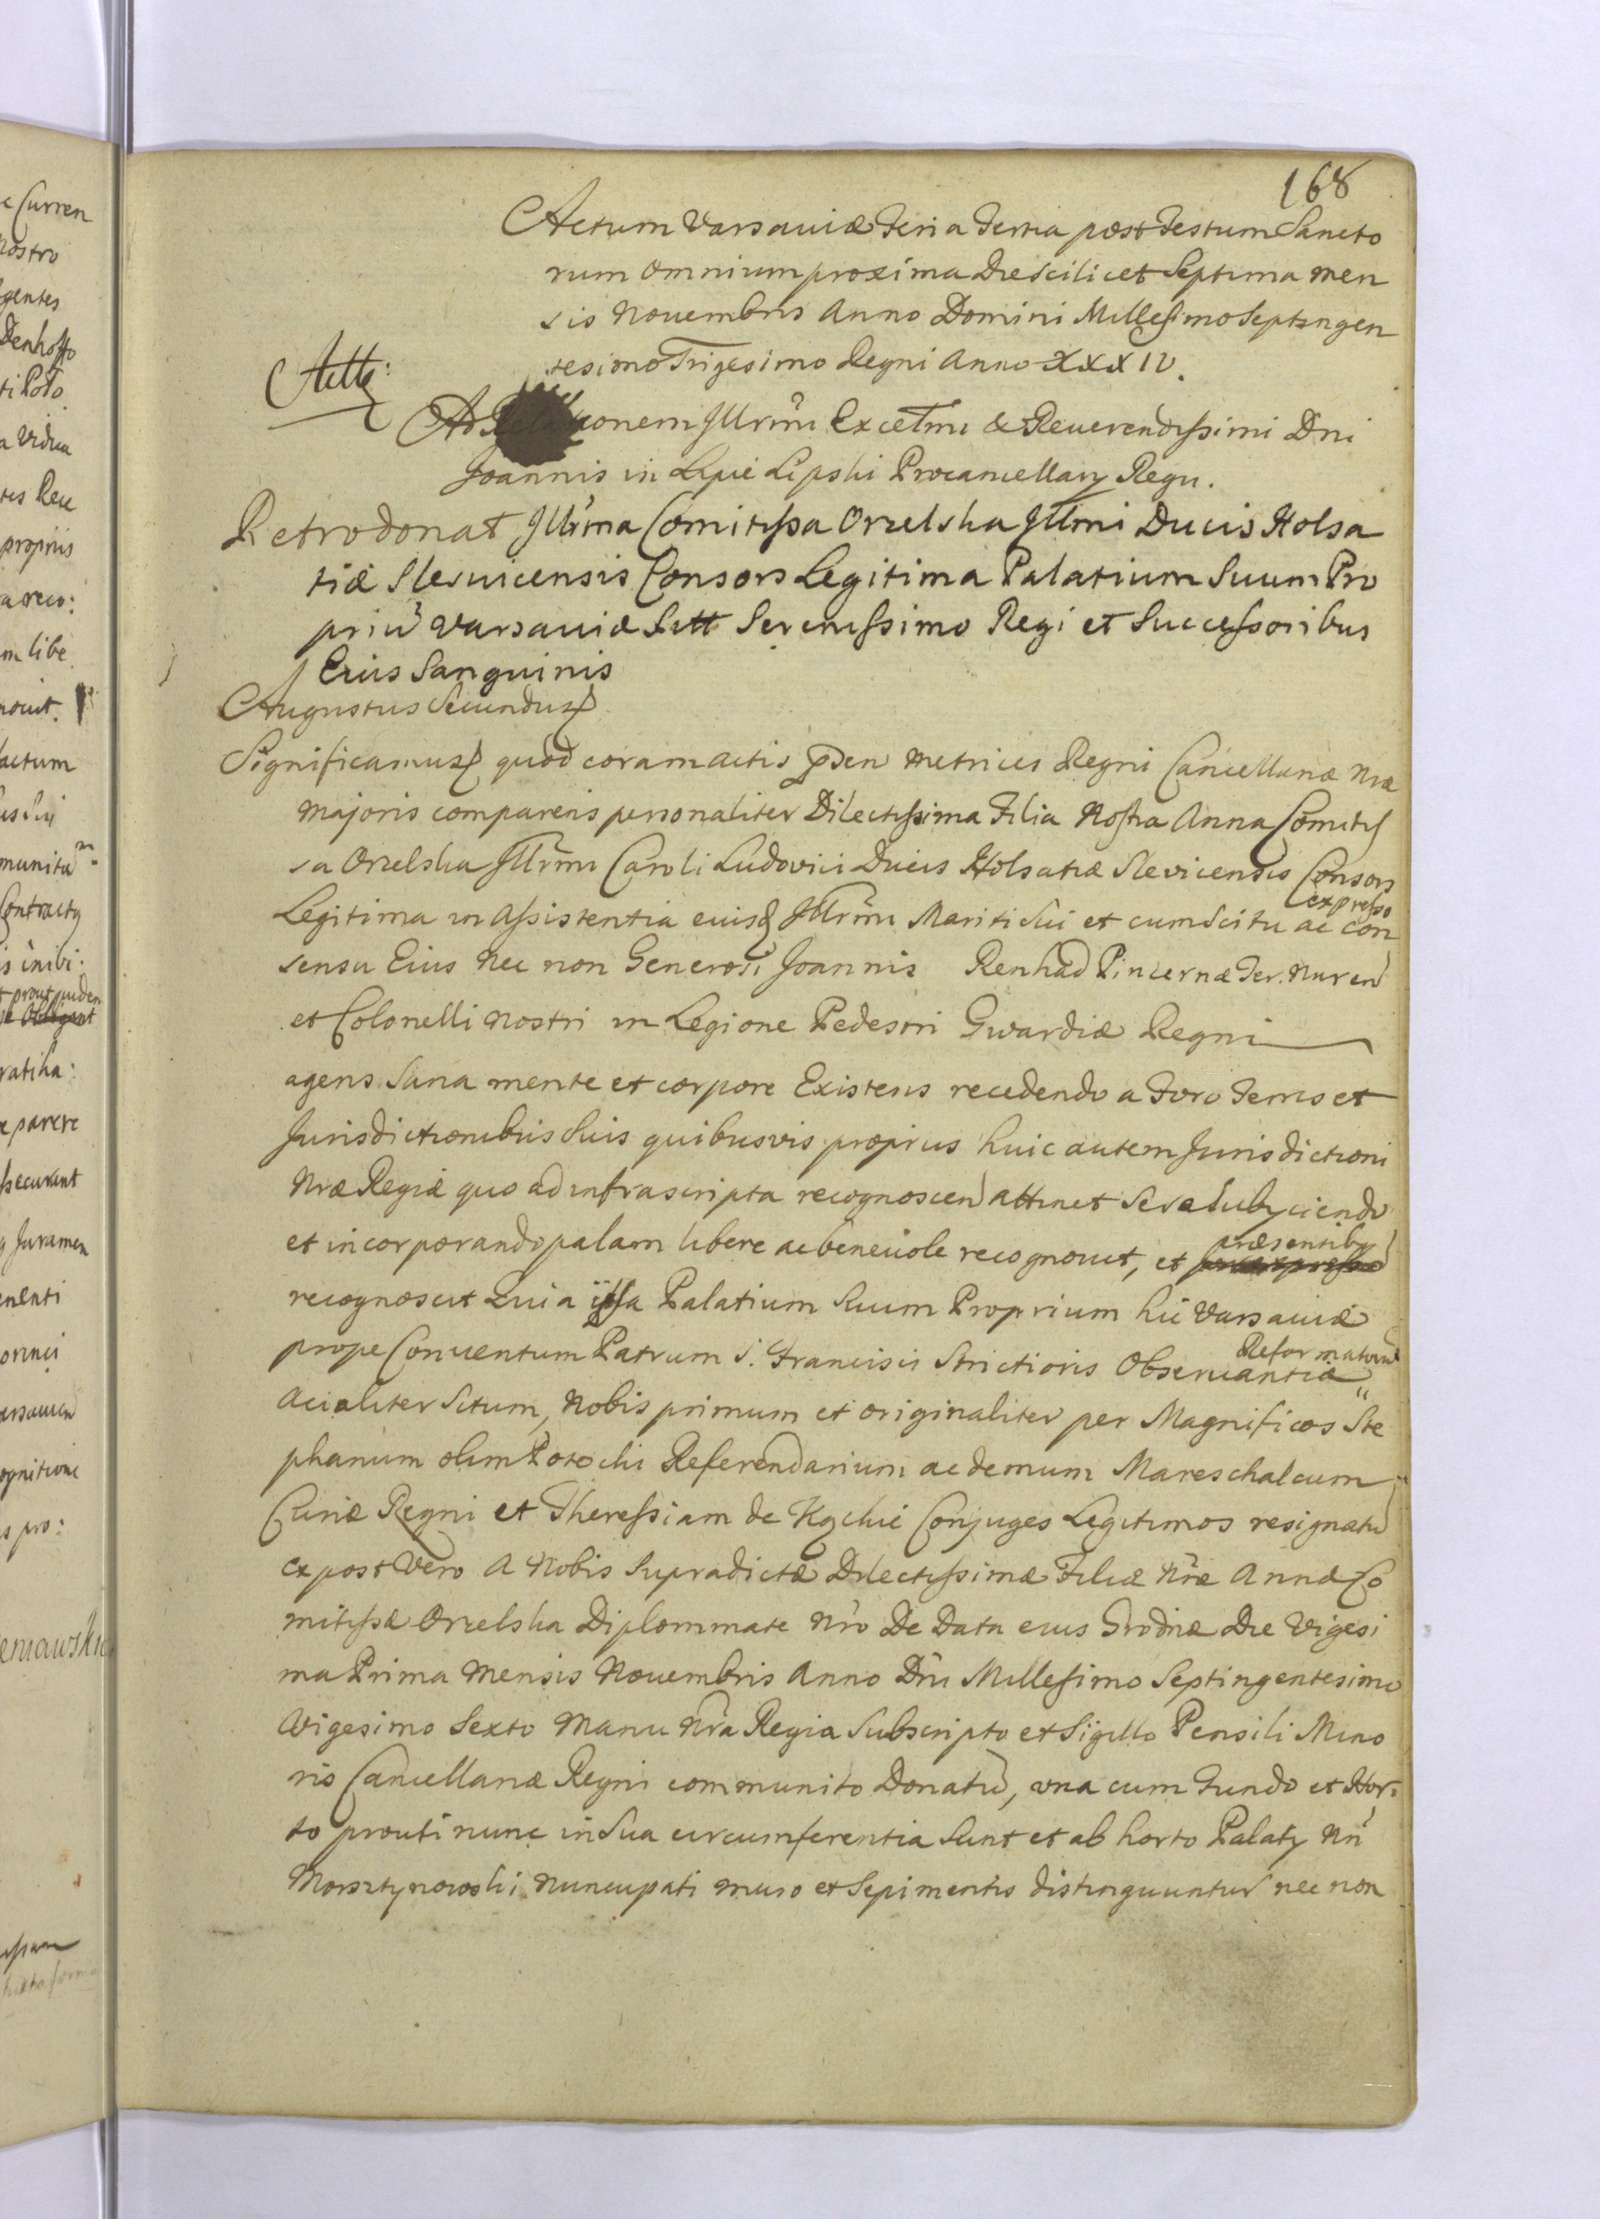 168
Actum Varsaviæ Feria Tertia post Festum Sancto
rum Omnium proxima Die scilicet Septima men
sis Novembris Anno Domini Millesimo Septingen
tesimo Trigesimo Regni Anno XXXIV.
Ad Relationem Illrmi Excellmi & Reverendissimi Dni
Joannis in Lipie Lipski Procancellarij Regni.
Retrodonat Illrma Comitissa Orzelska Illmi Ducis Holsa
tiæ Slesvicensis Consors Legitima Palatium Suum Pro
priũ Varsaviæ Sitt Serenissimo Regi et Successoribus
Eius Sanguinis
Augustus Secundus
Significamus quod coram actis pñden Metrices Regni Cancellariæ Nræ
Majoris comparens personaliter Dilectissima Filia Nostra Anna Comitis
sa Orzelska Illrmi Caroli Ludovici Ducis Holsatiæ Slevicensis Consors
Legitima in Assistentia eiusd Illrmi Mariti Sui et cum Scitu ac expresso con
sensu Eius nec non Generosi Joannis Renhad Pincernæ Ter. Nuren
et Colonelli Nostri in Legione Pedestri Gwardiæ Regni
agens Sana mente et corpore Existens recedendo a Foro Terris et
Jurisdictionibus Suis quibusvis proprius huic autem Jurisdictioni
Nræ Regiæ quo ad infrascripta recognoscen attinet Se se Subijciendo
et incorporando palam libere ac benevole recognovit, et præsentibus
recognoscit Quia ipsa Palatium Suum Proprium hic Varsaviæ
prope Conventum Patrum S. Francisci Strictioris Observantiæ Reformatorũ
Acialiter Situm, Nobis primum et originaliter per Magnificos Ste
phanum olim Potocki Referendarium ac demum Mareschalcum
Curiæ Regni et Theressiam de Kąckie Conjuges Legitimos resignatũ
ex post Vero A Nobis Supradictæ Dilectissimæ Filiæ Nræ Annæ Co
mitissæ Orzelska Diplommate Nro De Data eius Grodnæ Die Vigesi
ma Prima Mensis Novembris Anno Dni Millesimo Septingentesimo
Vigesimo Sexto Manu Nra Regia Subscripto et Sigillo Pensili Mino
ris Cancellariæ Regni communito Donatũ, una cum Fundo et Hor=
to prouti nunc in Sua circumferentia Sunt et ab horto Palatij Nri
Morsztynowski nuncupati muro et Sepimentis distinguuntur nec non